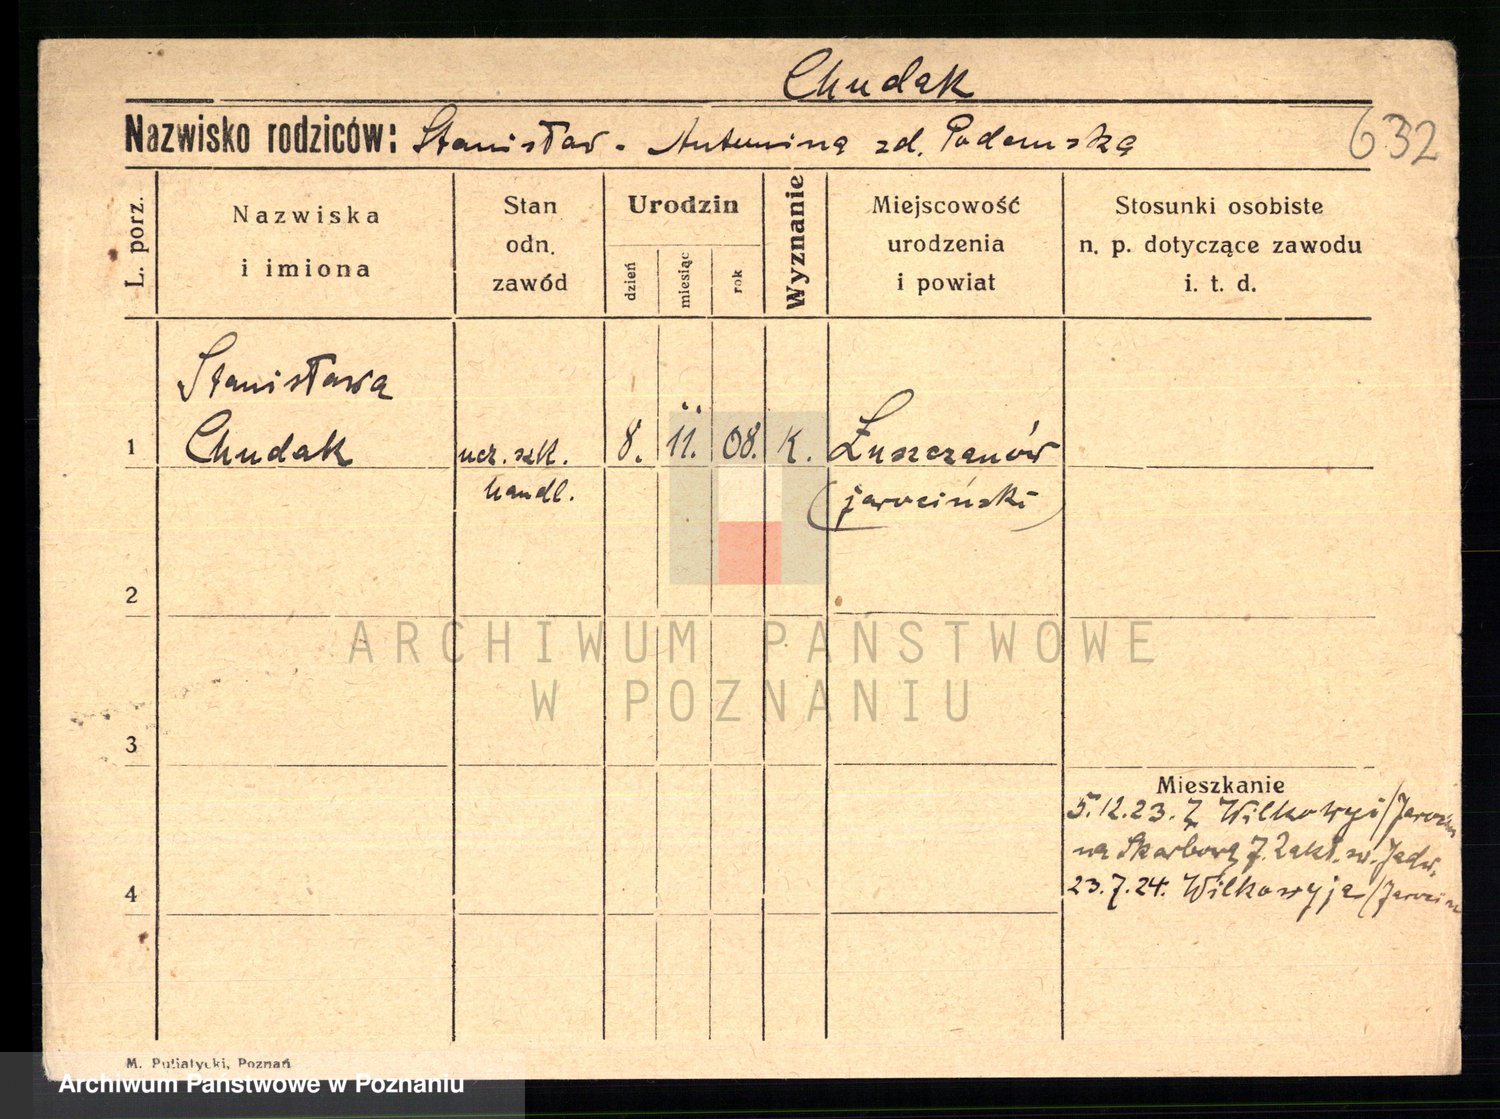 Chudak
Nazwisko rodziców: Stanisław - Antonina zd. Podemska
632
L. porz.
Nazwiska
i imiona
Stan
odn.
zawód
Urodzin
dzień
miesiąc
rok
Wyznanie
Miejscowość
urodzenia
i powiat
Stosunki osobiste
n. p. dotyczące zawodu
i. t. d.
Stanisława
1 Chudak ucz. szk. 8. 11. 08. K. Łuszczanów
handl. (jarociński)
2
ARCHIWUM PAŃSTWOWE
W POZNANIU
3
Mieszkanie
5.12.23. Z Wilkowyi/Jarocin
na Skarbową 7. Zakł. św. Jadw.
4 23.7.24. Wilkowyja/Jarocin
M. Putiatycki, Poznań
Archiwum Państwowe w Poznaniu